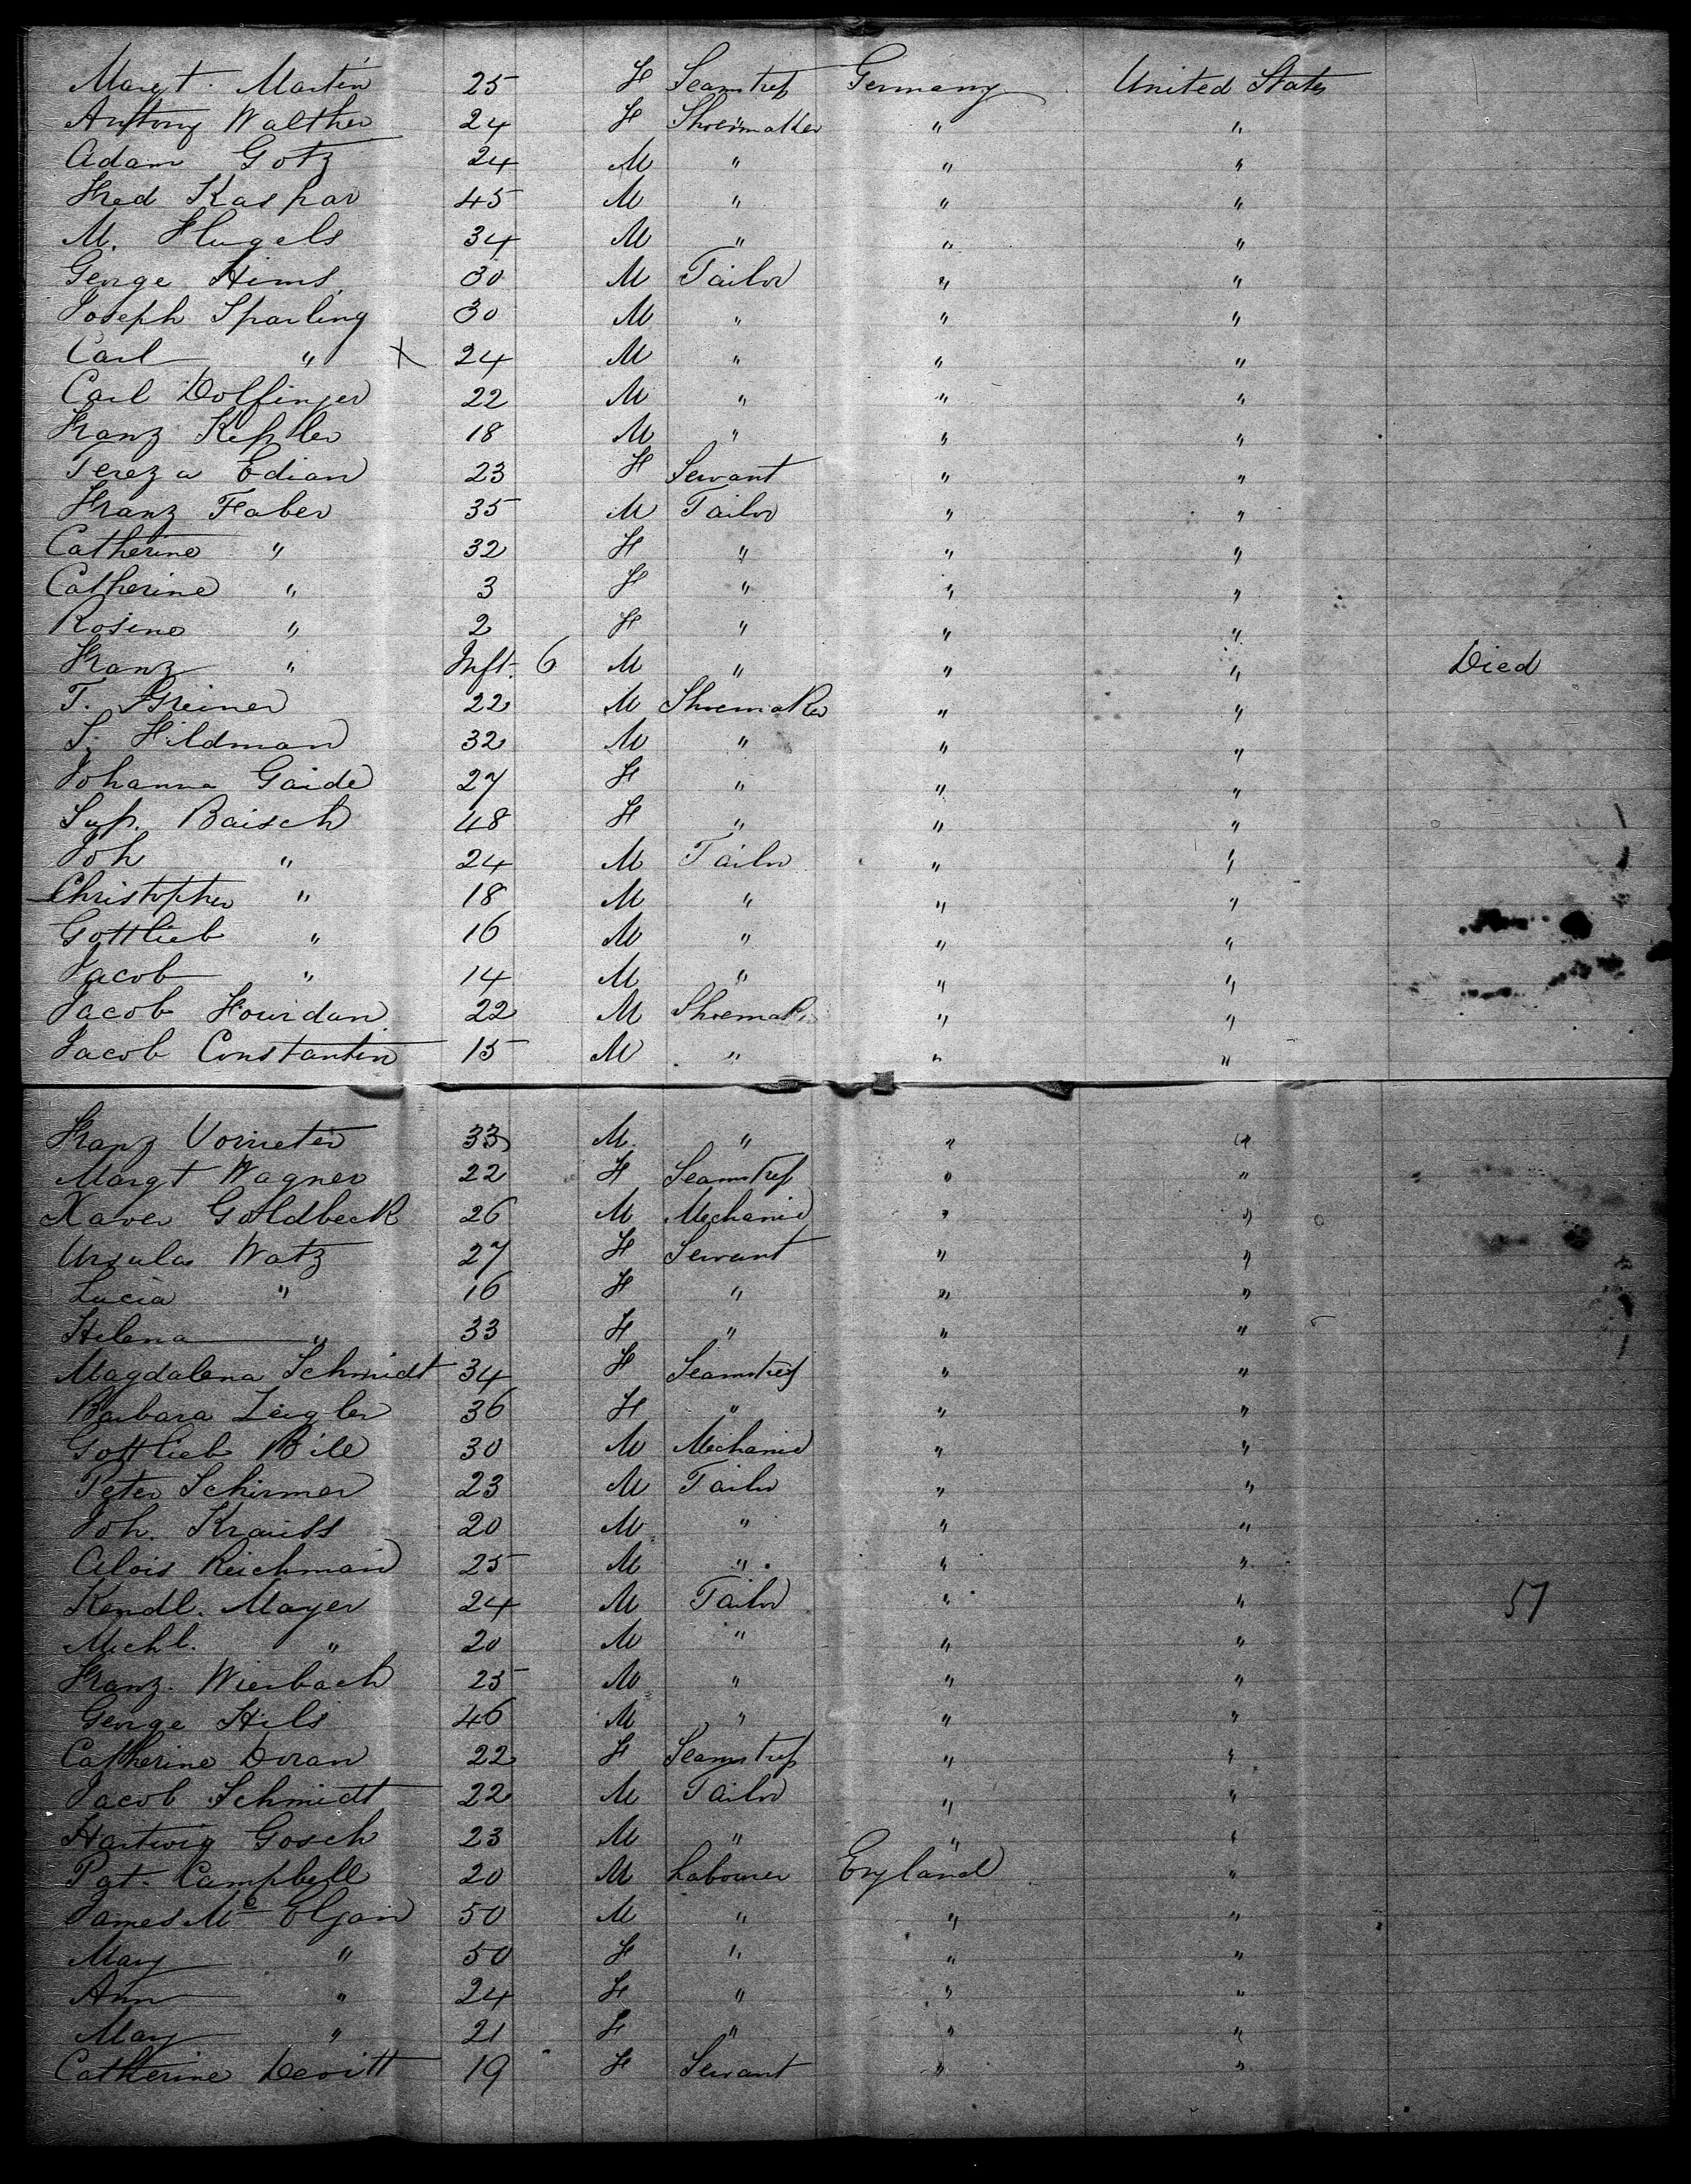 Margt. Martin 25 F Seamstress Germany United States
Anthony Walther 24 F Shoemaker " "
Adam Gotz 24 M " " "
Fred Kaspar 45 M " " "
M. Flugels 34 M " " "
George Hims. 30 M Tailor " "
Joseph Sparling 30 M " " "
Carl " X 24 M " " "
Carl Dolfinger 22 M " " "
Franz Kessler 18 M " " "
Tereza Edian 23 F Servant " "
Franz Faber 35 M Tailor " "
Catherine " 32 F " " "
Catherine " 3 F " " "
Rosine " 2 F " " "
Franz " Inft. 6 M " " " Died
T. Greiner 22 M Shoemaker " "
S. Hildman 32 M " " "
Johanna Gaide 27 F " " "
Baisch 48 F " " "
Joh " 24 M Tailor " "
Christopher " 18 M " " "
Gottlieb " 16 M " " "
Jacob " 14 M " " "
Jacob Hourdan 22 M Shoemaker " "
Jacob Constantin 15 M " " "
Franz 33 M " " "
Margt Wagner 22 F Seamstress " "
Xaver Goldbeck 26 M Mechanic " "
Ursula Watz 27 F Servant " "
Lucia " 16 F " " "
Helena " 33 F " " "
Magdalena Schmidt 34 F Seamstress " "
Barbara Zeigler 36 F " " "
Gottlieb Bile 30 M Mechanic " "
Peter Schirmer 23 M Tailor " "
Joh. Krauss 20 M " " "
Alois Reichman 25 M " " "
Kendl. Mayer 24 M Tailor " " 51
Michl. " 20 M " " "
Franz. Wierbach 25 M " " "
George Hils 46 M " " "
Catherine Doran 22 F Seamstress " "
Jacob Schmidt 22 M Tailor " "
Hartwig Gosch 23 M " " "
Pat. Campbell 20 M Labourer England "
James Mc Elgan 50 M " " "
Mary " 50 F " " "
Ann " 24 F " " "
Mary " 21 F " " "
Catherine Devitt 19 F Servant " "